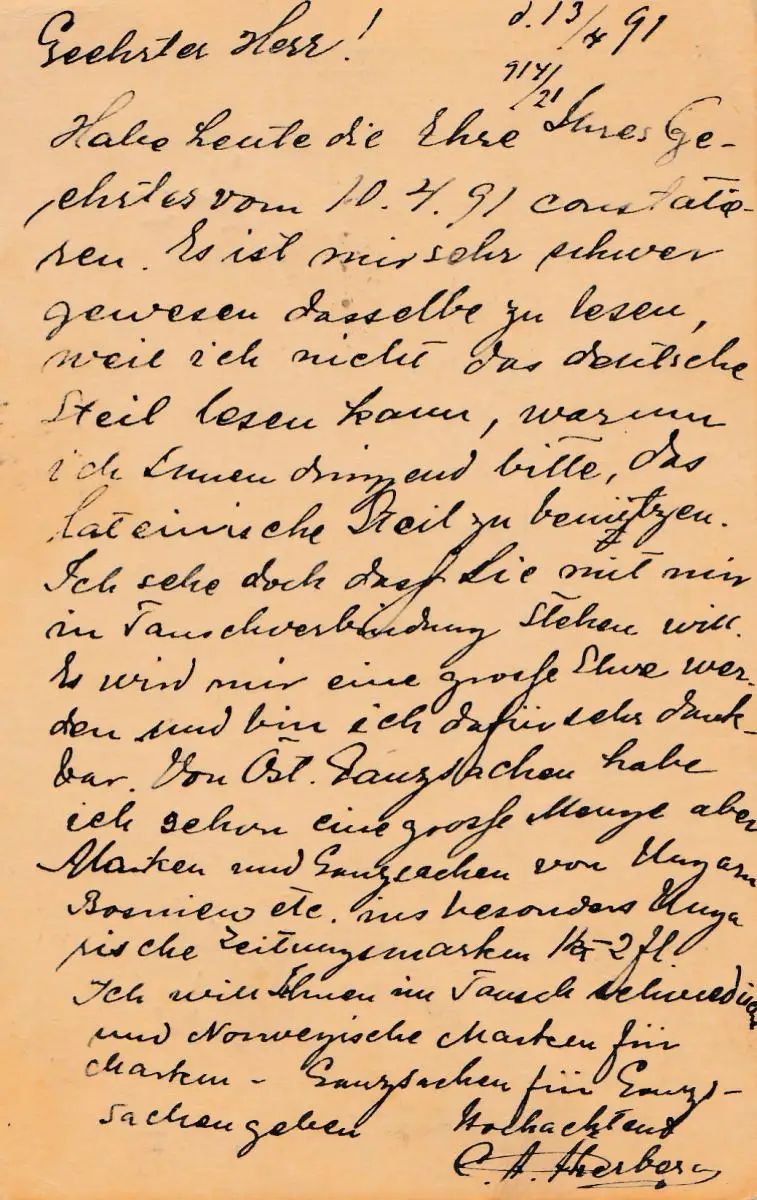 Geehrter Herr! d. 13/4 91
914/21
Habe heute die Ehre Ihres Ge-
ehrtes vom 10. 4. 91 constatie-
ren. Es ist mir sehr schwer
gewesen dasselbe zu lesen,
weil ich nicht das deutsche
Steil lesen kann, warum
ich Ihnen dringend bitte, das
lateinische Steil zu benützen.
Ich sehe doch dass Sie mit mir
in Tauschverbindung stehen will.
Es wird mir eine grosse Ehre wer-
den und bin ich dafür sehr dank-
bar. Von Öst. Ganzsachen habe
ich schon eine grosse Menge aber
Marken und Ganzsachen von Ungarn
Bosnien etc. ins besonders Unga
rische Zeitungsmarken 1k-2fl
Ich will Ihnen im Tausch schwedische
und Norwegische Marken für
Marken - Ganzsachen für Ganz-
sachen geben Hochachtend
C. A.